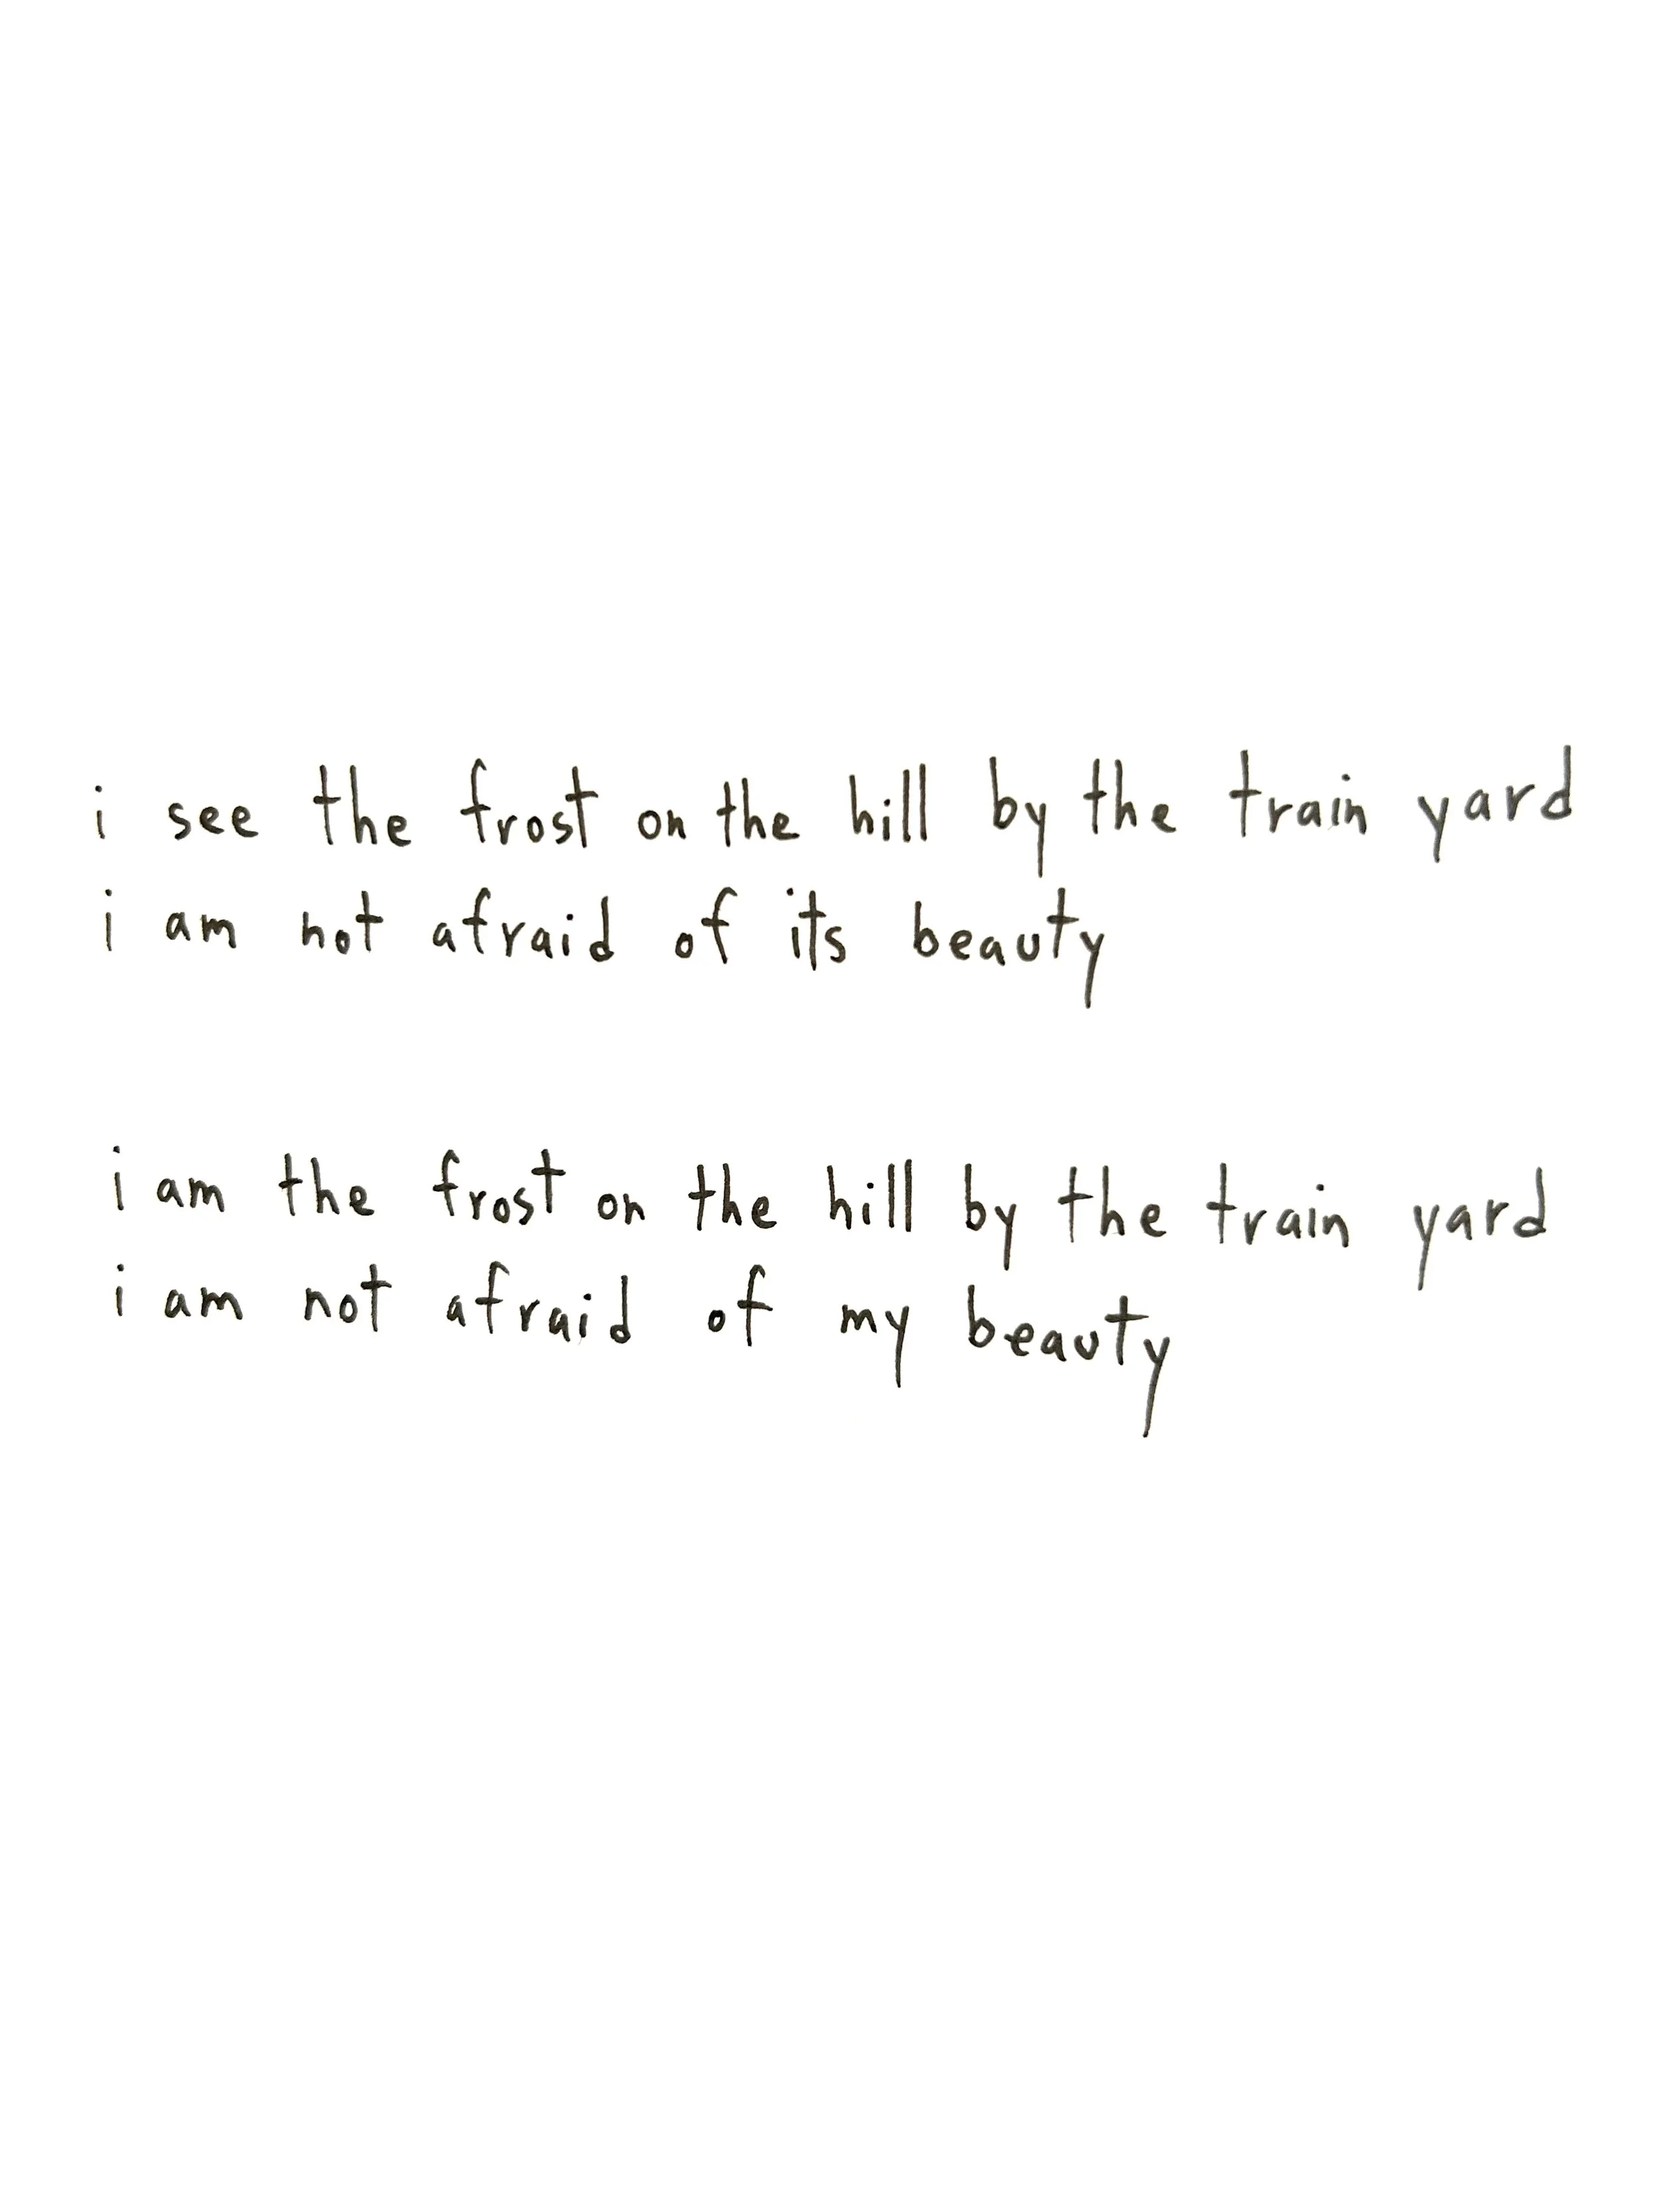 i see the frost on the hill by the train yard
i am not afraid of its beauty
i am the frost on the hill by the train yard
i am not afraid of my beauty